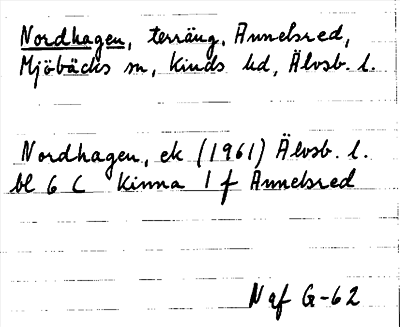 Nordhagen, terräng, Annelsred,
Mjöbäcks sn, Kinds hd, Älvsb. l.
Nordhagen, ek (1961) Älvsb. l.
bl 6 C Kinna 1 f Annelsred
Naf G-62